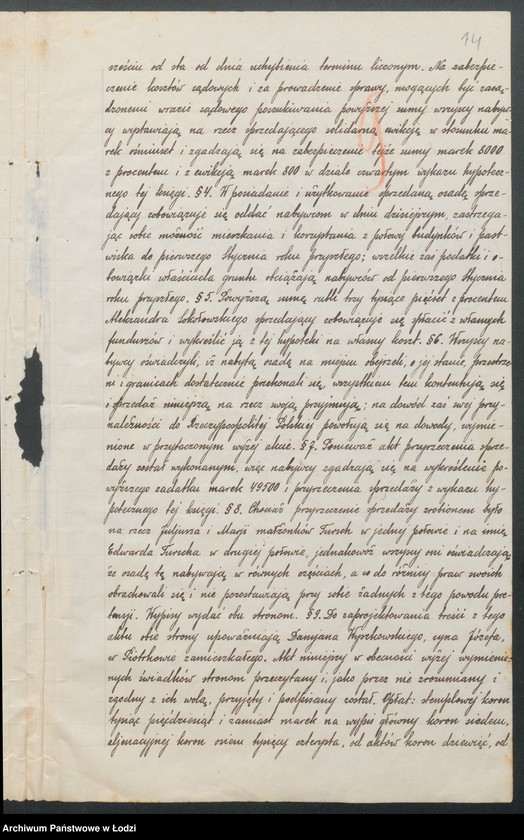 14
sześciu od sta od dnia uchybienia terminu liczonym. Na zabezpie-
czenie kosztów sądowych i za prowadzenie sprawy, mogących być zasą-
dzonemi wrazie sądowego poszukiwania powyższej sumy wszyscy nabyw-
cy wystawiają na rzecz sprzedającego solidarną ewikcję w stosunku ma-
rek ośmiuset i zgadzają się na zabezpieczenie tejże sumy marek 8000
z procentem i z ewikcją marek 800 w dziale czwartym wykazu hypotecz-
nego tej księgi. § 4. W posiadanie i użytkowanie sprzedaną osadę sprze-
dający zobowiązuje się oddać nabywcom w dniu dzisiejszym, zastrzega-
jąc sobie możność mieszkania i korzystania z połowy budynków i past-
wiska do pierwszego Stycznia roku przyszłego; wszelkie zaś podatki i o-
bowiązki właściciela gruntu obciążają nabywców od pierwszego Stycznia
roku przyszłego. § 5. Powyższą sumę rubli trzy tysiące pięćset z procentem
Aleksandra Sokołowskiego sprzedający zobowiązuje się spłacić z własnych
funduszów i wykreślić ją z tej hypoteki na własny koszt. § 6. Wszyscy na-
bywcy oświadczyli, iż nabytą osadę na miejscu obejrzeli, o jej stanie, przestrze-
ni i granicach dostatecznie przekonali się, wszystkiem tem kontentują się
i sprzedaż niniejszą na rzecz swoją przyjmują; na dowód zaś swej przy-
należności do Rzeczypospolitej Polskiej powołują się na dowody, wymie-
nione w przytoczonym wyżej akcie. § 7. Ponieważ akt przyrzeczenia sprze-
daży został wykonanym, więc nabywcy zgadzają się na wykreślenie po-
wyższego zadatku marek 49500 i przyrzeczenia sprzedaży z wykazu hy-
potecznego tej księgi. § 8. Chociaż przyrzeczenie sprzedaży zrobionem było
na rzecz Juljusza i Marji małżonków Fursch w jednej połowie i na imię
Edwarda Furscha w drugiej połowie, jednakowoż wszyscy oni oświadczają
że osadę tę nabywają w równych częściach, a co do różnicy praw swoich
obrachowali się i nie pozostawiają przy sobie żadnych z tego powodu pre-
tensji. Wypisy wydać obu stronom. § 9. Do zaprojektowania treści z tego
aktu obie strony upoważniają Damjana Wyszkowskiego, syna Józefa,
w Piotrkowie zamieszkałego. Akt niniejszy w obecności wyżej wymienio-
nych świadków stronom przeczytany i, jako przez nie zrozumiany i
zgodny z ich wolą, przyjęty i podpisany został. Opłat: stemplowej koron
tysiąc pięćdziesiąt i zamiast marek na wypis główny koron siedem,
aljenacyjnej koron osiem tysięcy czterysta, od aktów koron dziewięć, od
Archiwum Państwowe w Łodzi